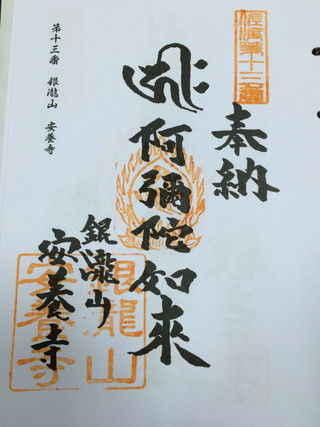 佐渡第十三番
奉納
阿彌陀如來
銀瀧山
安養寺
銀龍山
安養寺
第十三番 銀瀧山 安養寺